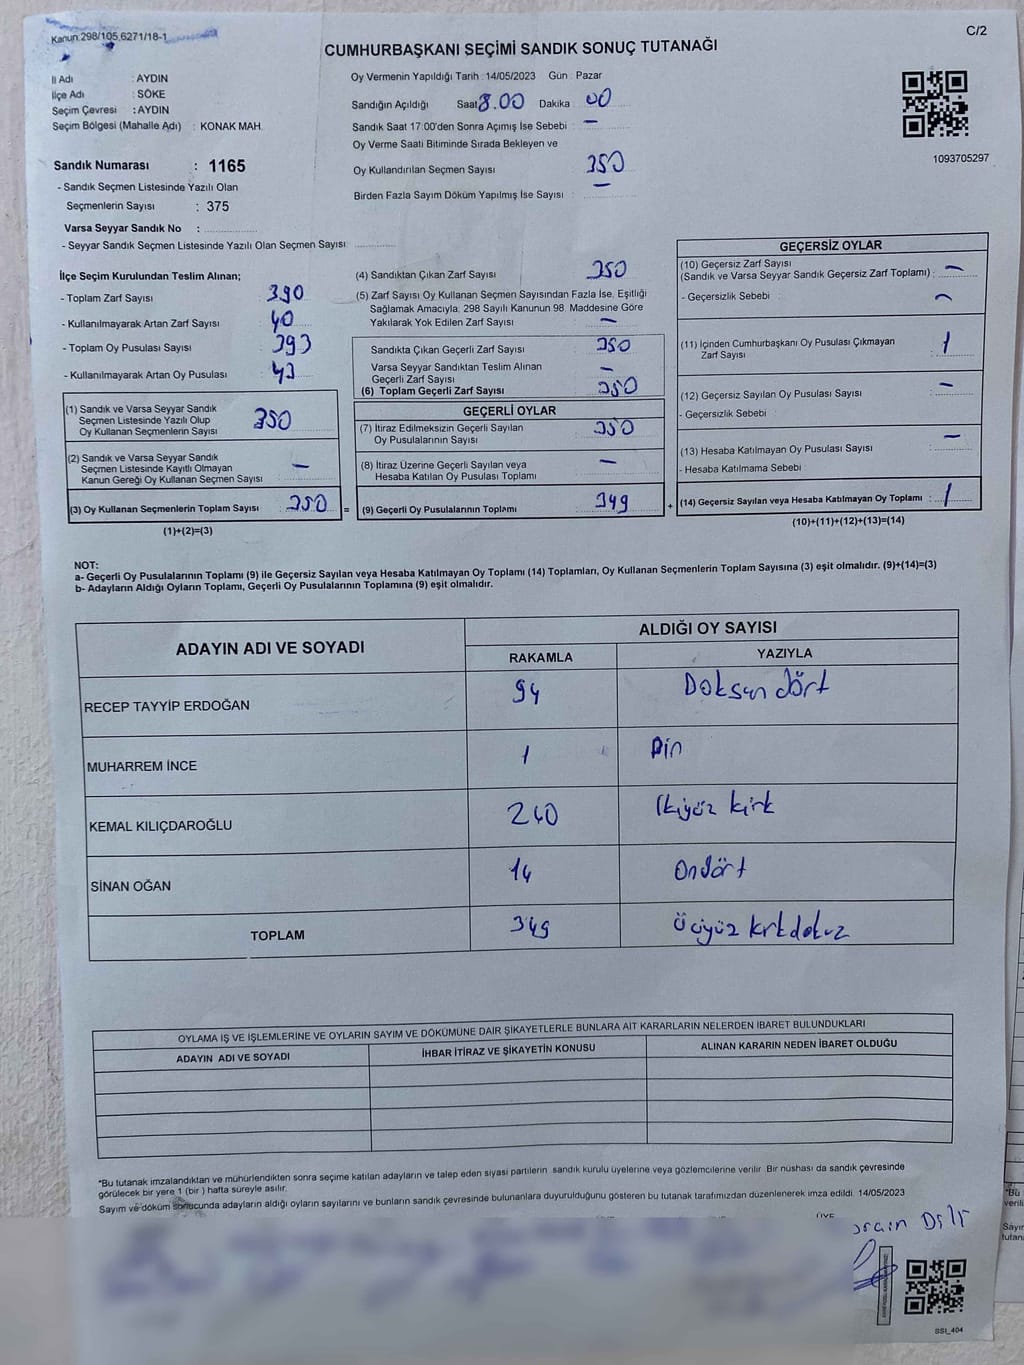 Kanun:298/105,6271/18-1
C/2
CUMHURBAŞKANI SEÇİMİ SANDIK SONUÇ TUTANAĞI
İl Adı : AYDIN
İlçe Adı : SÖKE
Seçim Çevresi : AYDIN
Seçim Bölgesi (Mahalle Adı) : KONAK MAH.
Oy Vermenin Yapıldığı Tarih : 14/05/2023 Gün : Pazar
Sandığın Açıldığı Saat 8.00 Dakika 00
Sandık Saat 17:00'den Sonra Açımış İse Sebebi : —
Oy Verme Saati Bitiminde Sırada Bekleyen ve
Oy Kullandırılan Seçmen Sayısı 350
Birden Fazla Sayım Döküm Yapılmış İse Sayısı : —
1093705297
Sandık Numarası : 1165
- Sandık Seçmen Listesinde Yazılı Olan
Seçmenlerin Sayısı : 375
Varsa Seyyar Sandık No :
- Seyyar Sandık Seçmen Listesinde Yazılı Olan Seçmen Sayısı
İlçe Seçim Kurulundan Teslim Alınan;
- Toplam Zarf Sayısı 390
- Kullanılmayarak Artan Zarf Sayısı 40
- Toplam Oy Pusulası Sayısı : 393
- Kullanılmayarak Artan Oy Pusulası : 43
(1) Sandık ve Varsa Seyyar Sandık
Seçmen Listesinde Yazılı Olup
Oy Kullanan Seçmenlerin Sayısı 350
(2) Sandık ve Varsa Seyyar Sandık
Seçmen Listesinde Kayıtlı Olmayan
Kanun Gereği Oy Kullanan Seçmen Sayısı : —
(3) Oy Kullanan Seçmenlerin Toplam Sayısı : 350 =
(1)+(2)=(3)
(4) Sandıktan Çıkan Zarf Sayısı 350
(5) Zarf Sayısı Oy Kullanan Seçmen Sayısından Fazla İse, Eşitliği
Sağlamak Amacıyla; 298 Sayılı Kanunun 98. Maddesine Göre
Yakılarak Yok Edilen Zarf Sayısı : —
Sandıkta Çıkan Geçerli Zarf Sayısı 350
Varsa Seyyar Sandıktan Teslim Alınan
Geçerli Zarf Sayısı : —
(6) Toplam Geçerli Zarf Sayısı : 350
GEÇERLİ OYLAR
(7) İtiraz Edilmeksizin Geçerli Sayılan
Oy Pusulalarının Sayısı : 350
(8) İtiraz Üzerine Geçerli Sayılan veya
Hesaba Katılan Oy Pusulası Toplamı : —
(9) Geçerli Oy Pusulalarının Toplamı : 349 +
GEÇERSİZ OYLAR
(10) Geçersiz Zarf Sayısı
(Sandık ve Varsa Seyyar Sandık Geçersiz Zarf Toplamı) : —
- Geçersizlik Sebebi : —
(11) İçinden Cumhurbaşkanı Oy Pusulası Çıkmayan
Zarf Sayısı : 1
(12) Geçersiz Sayılan Oy Pusulası Sayısı : —
- Geçersizlik Sebebi :
(13) Hesaba Katılmayan Oy Pusulası Sayısı : —
- Hesaba Katılmama Sebebi :
(14) Geçersiz Sayılan veya Hesaba Katılmayan Oy Toplamı : 1
(10)+(11)+(12)+(13)=(14)
NOT:
a- Geçerli Oy Pusulalarının Toplamı (9) ile Geçersiz Sayılan veya Hesaba Katılmayan Oy Toplamı (14) Toplamları, Oy Kullanan Seçmenlerin Toplam Sayısına (3) eşit olmalıdır. (9)+(14)=(3)
b- Adayların Aldığı Oyların Toplamı, Geçerli Oy Pusulalarının Toplamına (9) eşit olmalıdır.
ADAYIN ADI VE SOYADI
ALDIĞI OY SAYISI
RAKAMLA YAZIYLA
RECEP TAYYİP ERDOĞAN 94 Doksan dört
MUHARREM İNCE 1 Bir
KEMAL KILIÇDAROĞLU 240 İkiyüz kırk
SİNAN OĞAN 14 Ondört
TOPLAM 349 Üçyüz kırkdokuz
OYLAMA İŞ VE İŞLEMLERİNE VE OYLARIN SAYIM VE DÖKÜMÜNE DAİR ŞİKAYETLERLE BUNLARA AİT KARARLARIN NELERDEN İBARET BULUNDUKLARI
ADAYIN ADI VE SOYADI İHBAR İTİRAZ VE ŞİKAYETİN KONUSU ALINAN KARARIN NEDEN İBARET OLDUĞU
*Bu tutanak imzalandıktan ve mühürlendikten sonra seçime katılan adayların ve talep eden siyasi partilerin sandık kurulu üyelerine veya gözlemcilerine verilir. Bir nüshası da sandık çevresinde
görülecek bir yere 1 (bir ) hafta süreyle asılır.
Sayım ve döküm sonucunda adayların aldığı oyların sayılarını ve bunların sandık çevresinde bulunanlara duyurulduğunu gösteren bu tutanak tarafımızdan düzenlenerek imza edildi. 14/05/2023
ÜYE
SSI_404